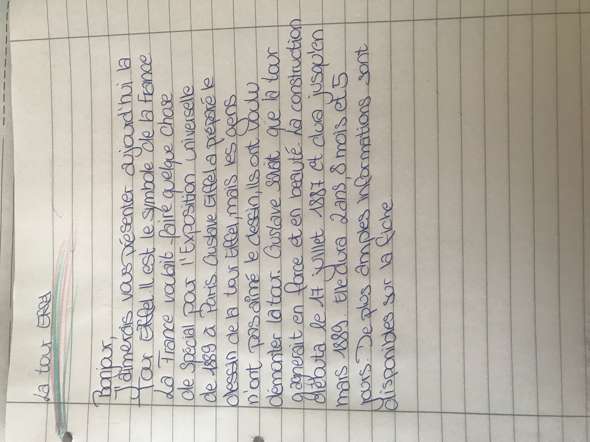 La tour Eiffel
Bonjour,
J'aimerais vous présenter aujourd'hui la
Tour Eiffel. Il est le symbole de la France
La France voulait faire quelque chose
de spécial pour l'Exposition universelle
de 1889 à Paris. Gustave Eiffel a préparé le
dessin de la tour Eiffel, mais les gens
n'ont pas aimé le dessin, ils ont voulu
démonter la tour. Gustave savait que la tour
gagnerait en force et en beauté. La construction
débuta le 17 juillet 1887 et dura jusqu'en
mars 1889. Elle dura 2 ans, 8 mois et 5
jours. De plus amples informations sont
disponibles sur la fiche.